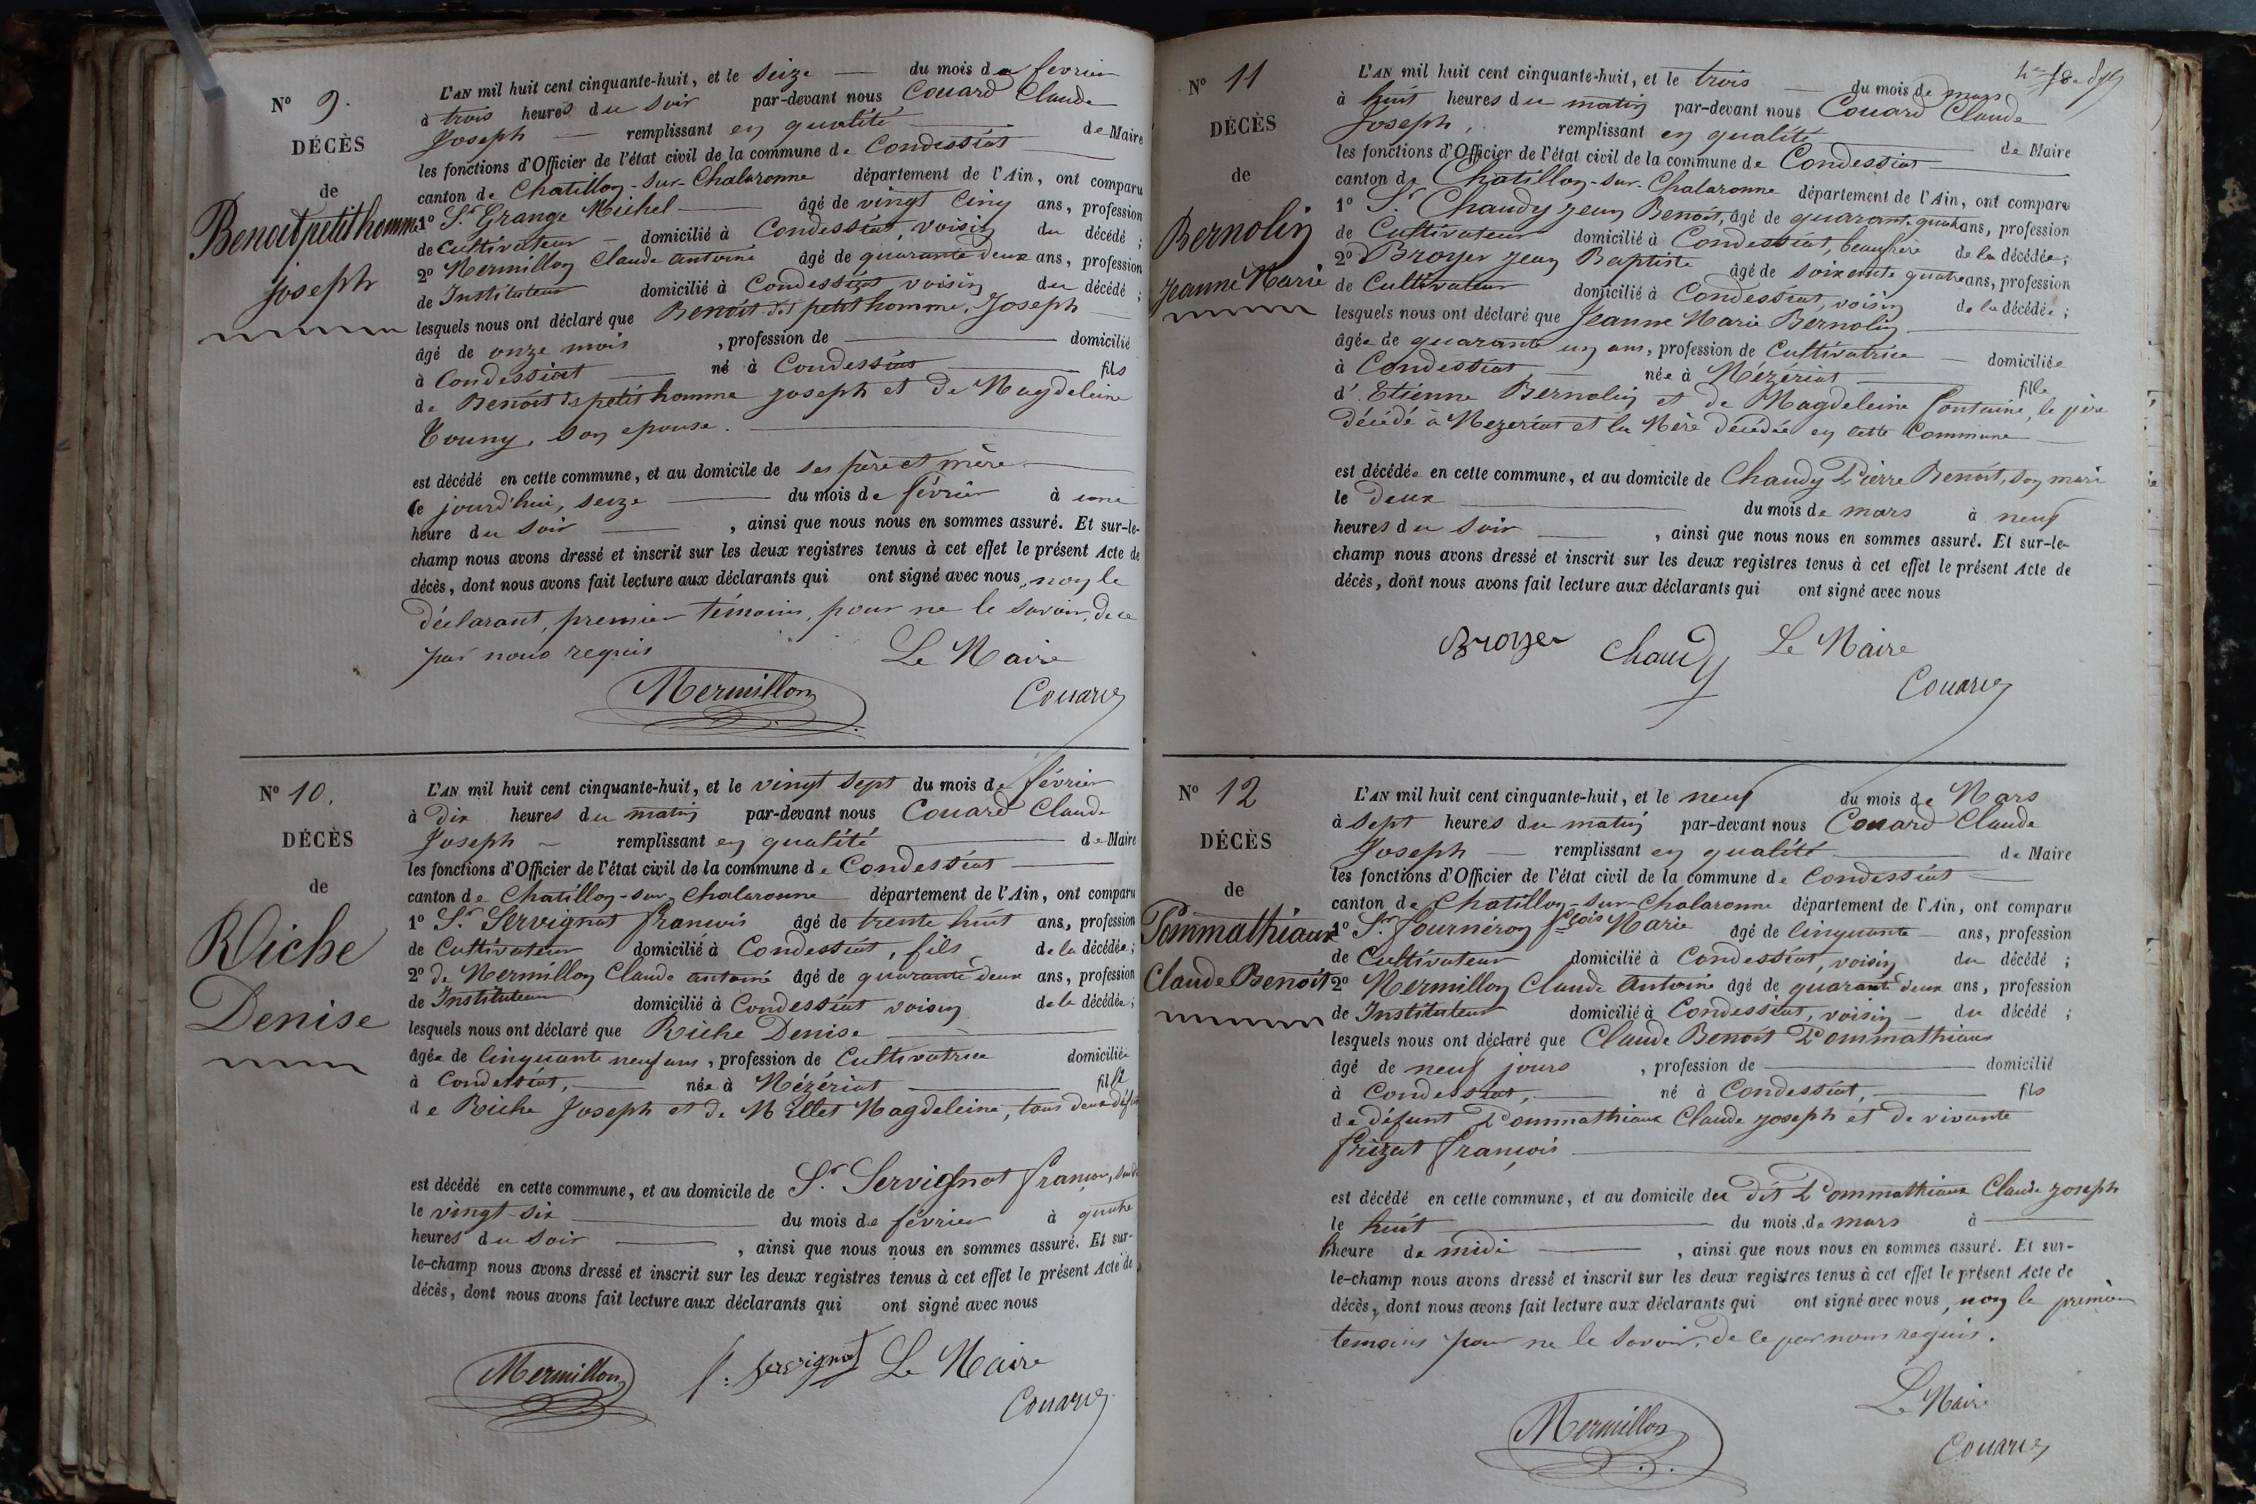 N° 9.
DÉCÈS
de
Benoit petit homme
Joseph
L'AN mil huit cent cinquante-huit, et le seize du mois de février
à trois heures du soir par-devant nous Couard Claude
Joseph remplissant en qualité de Maire
les fonctions d'Officier de l'état civil de la commune de Condessiat
canton de Chatillon-sur-Chalaronne département de l'Ain, ont comparu
1° Sr Grange Michel âgé de vingt cinq ans, profession
de Cultivateur domicilié à Condessiat, voisin du décédé ;
2° Mermillon Claude antoine âgé de quarante deux ans, profession
de Instituteur domicilié à Condessiat voisin du décédé ;
lesquels nous ont déclaré que Benoit dit petit homme, Joseph
âgé de onze mois , profession de domicilié
à Condessiat né à Condessiat fils
de Benoit petit homme Joseph et de Magdeleine
son epouse.
est décédé en cette commune, et au domicile de ses père et mère
le jourd'hui, seize du mois de février à une
heure du soir , ainsi que nous nous en sommes assuré. Et sur-le-
champ nous avons dressé et inscrit sur les deux registres tenus à cet effet le présent Acte de
décès, dont nous avons fait lecture aux déclarants qui ont signé avec nous, non le
déclarant, premier témoin, pour ne le savoir, de ce
par nous requis Le Maire
Mermillon Couard
N° 10.
DÉCÈS
de
Riche
Denise
L'AN mil huit cent cinquante-huit, et le vingt sept du mois de février
à dix heures du matin par-devant nous Couard Claude
Joseph remplissant en qualité de Maire
les fonctions d'Officier de l'état civil de la commune de Condessiat
canton de Chatillon-sur-Chalaronne département de l'Ain, ont comparu
1° Sr Servignat francois âgé de trente huit ans, profession
de Cultivateur domicilié à Condessiat, fils de la décédée ;
2° de Mermillon Claude antoine âgé de quarante deux ans, profession
de Instituteur domicilié à Condessiat voisin de la décédée ;
lesquels nous ont déclaré que Riche Denise
âgée de cinquante neuf ans, profession de Cultivatrice domiciliée
à Condessiat, née à Mézériat fille
de Riche Joseph et de Millet Magdeleine, tous deux
est décédé en cette commune, et au domicile de Sr Servignat françois,
le vingt-six du mois de février à quatre
heures du soir , ainsi que nous nous en sommes assuré. Et sur-
le-champ nous avons dressé et inscrit sur les deux registres tenus à cet effet le présent Acte de
décès, dont nous avons fait lecture aux déclarants qui ont signé avec nous
Mermillon f. Servignat Le Maire
Couard
N° 11
DÉCÈS
de
Bernolin
Jeanne Marie
L'AN mil huit cent cinquante-huit, et le trois du mois de mars
à huit heures du matin par-devant nous Couard Claude
Joseph, remplissant en qualité de Maire
les fonctions d'Officier de l'état civil de la commune de Condessiat
canton de Chatillon-sur-Chalaronne département de l'Ain, ont comparu
1° Sr Chaudy Jean Benoit, âgé de quarante quatre ans, profession
de Cultivateur domicilié à Condessiat, beaufrère de la décédée ;
2° Broyer Jean Baptiste âgé de soixente quatre ans, profession
de Cultivateur domicilié à Condessiat, voisin de la décédée ;
lesquels nous ont déclaré que Jeanne Marie Bernolin
âgée de quarante un ans, profession de Cultivatrice domiciliée
à Condessiat, née à Mézériat fille
d'Etienne Bernolin et de Magdeleine fontaine, le père
décédé à Mezeriat et la Mère décédée en cette Commune
est décédée en cette commune, et au domicile de Chaudy Pierre Benoit, son mari
le deux du mois de mars à neuf
heures du soir , ainsi que nous nous en sommes assuré. Et sur-le-
champ nous avons dressé et inscrit sur les deux registres tenus à cet effet le présent Acte de
décès, dont nous avons fait lecture aux déclarants qui ont signé avec nous
Broyer Chaudy Le Maire
Couard
N° 12
DÉCÈS
de
Pommathiaux
Claude Benoit
L'AN mil huit cent cinquante-huit, et le neuf du mois de Mars
à sept heures du matin par-devant nous Couard Claude
Joseph remplissant en qualité de Maire
les fonctions d'Officier de l'état civil de la commune de Condessiat
canton de Chatillon-sur-Chalaronne département de l'Ain, ont comparu
1° Sr fournéron fçois Marie âgé de cinquante ans, profession
de Cultivateur domicilié à Condessiat, voisin du décédé ;
2° Mermillon Claude Antoine âgé de quarante deux ans, profession
de Instituteur domicilié à Condessiat, voisin du décédé ;
lesquels nous ont déclaré que Claude Benoit Pommathiaux
âgé de neuf jours , profession de domicilié
à Condessiat, né à Condessiat, fils
de défunt Pommathiaux Claude Joseph et de vivante
frizat françois
est décédé en cette commune, et au domicile du dit Pommathiaux Claude Joseph
le huit du mois de mars à
heure de midi , ainsi que nous nous en sommes assuré. Et sur-
le-champ nous avons dressé et inscrit sur les deux registres tenus à cet effet le présent Acte de
décès, dont nous avons fait lecture aux déclarants qui ont signé avec nous, non le premier
temoins pour ne le savoir, de ce par nous requis.
Le Maire
Mermillon Couard